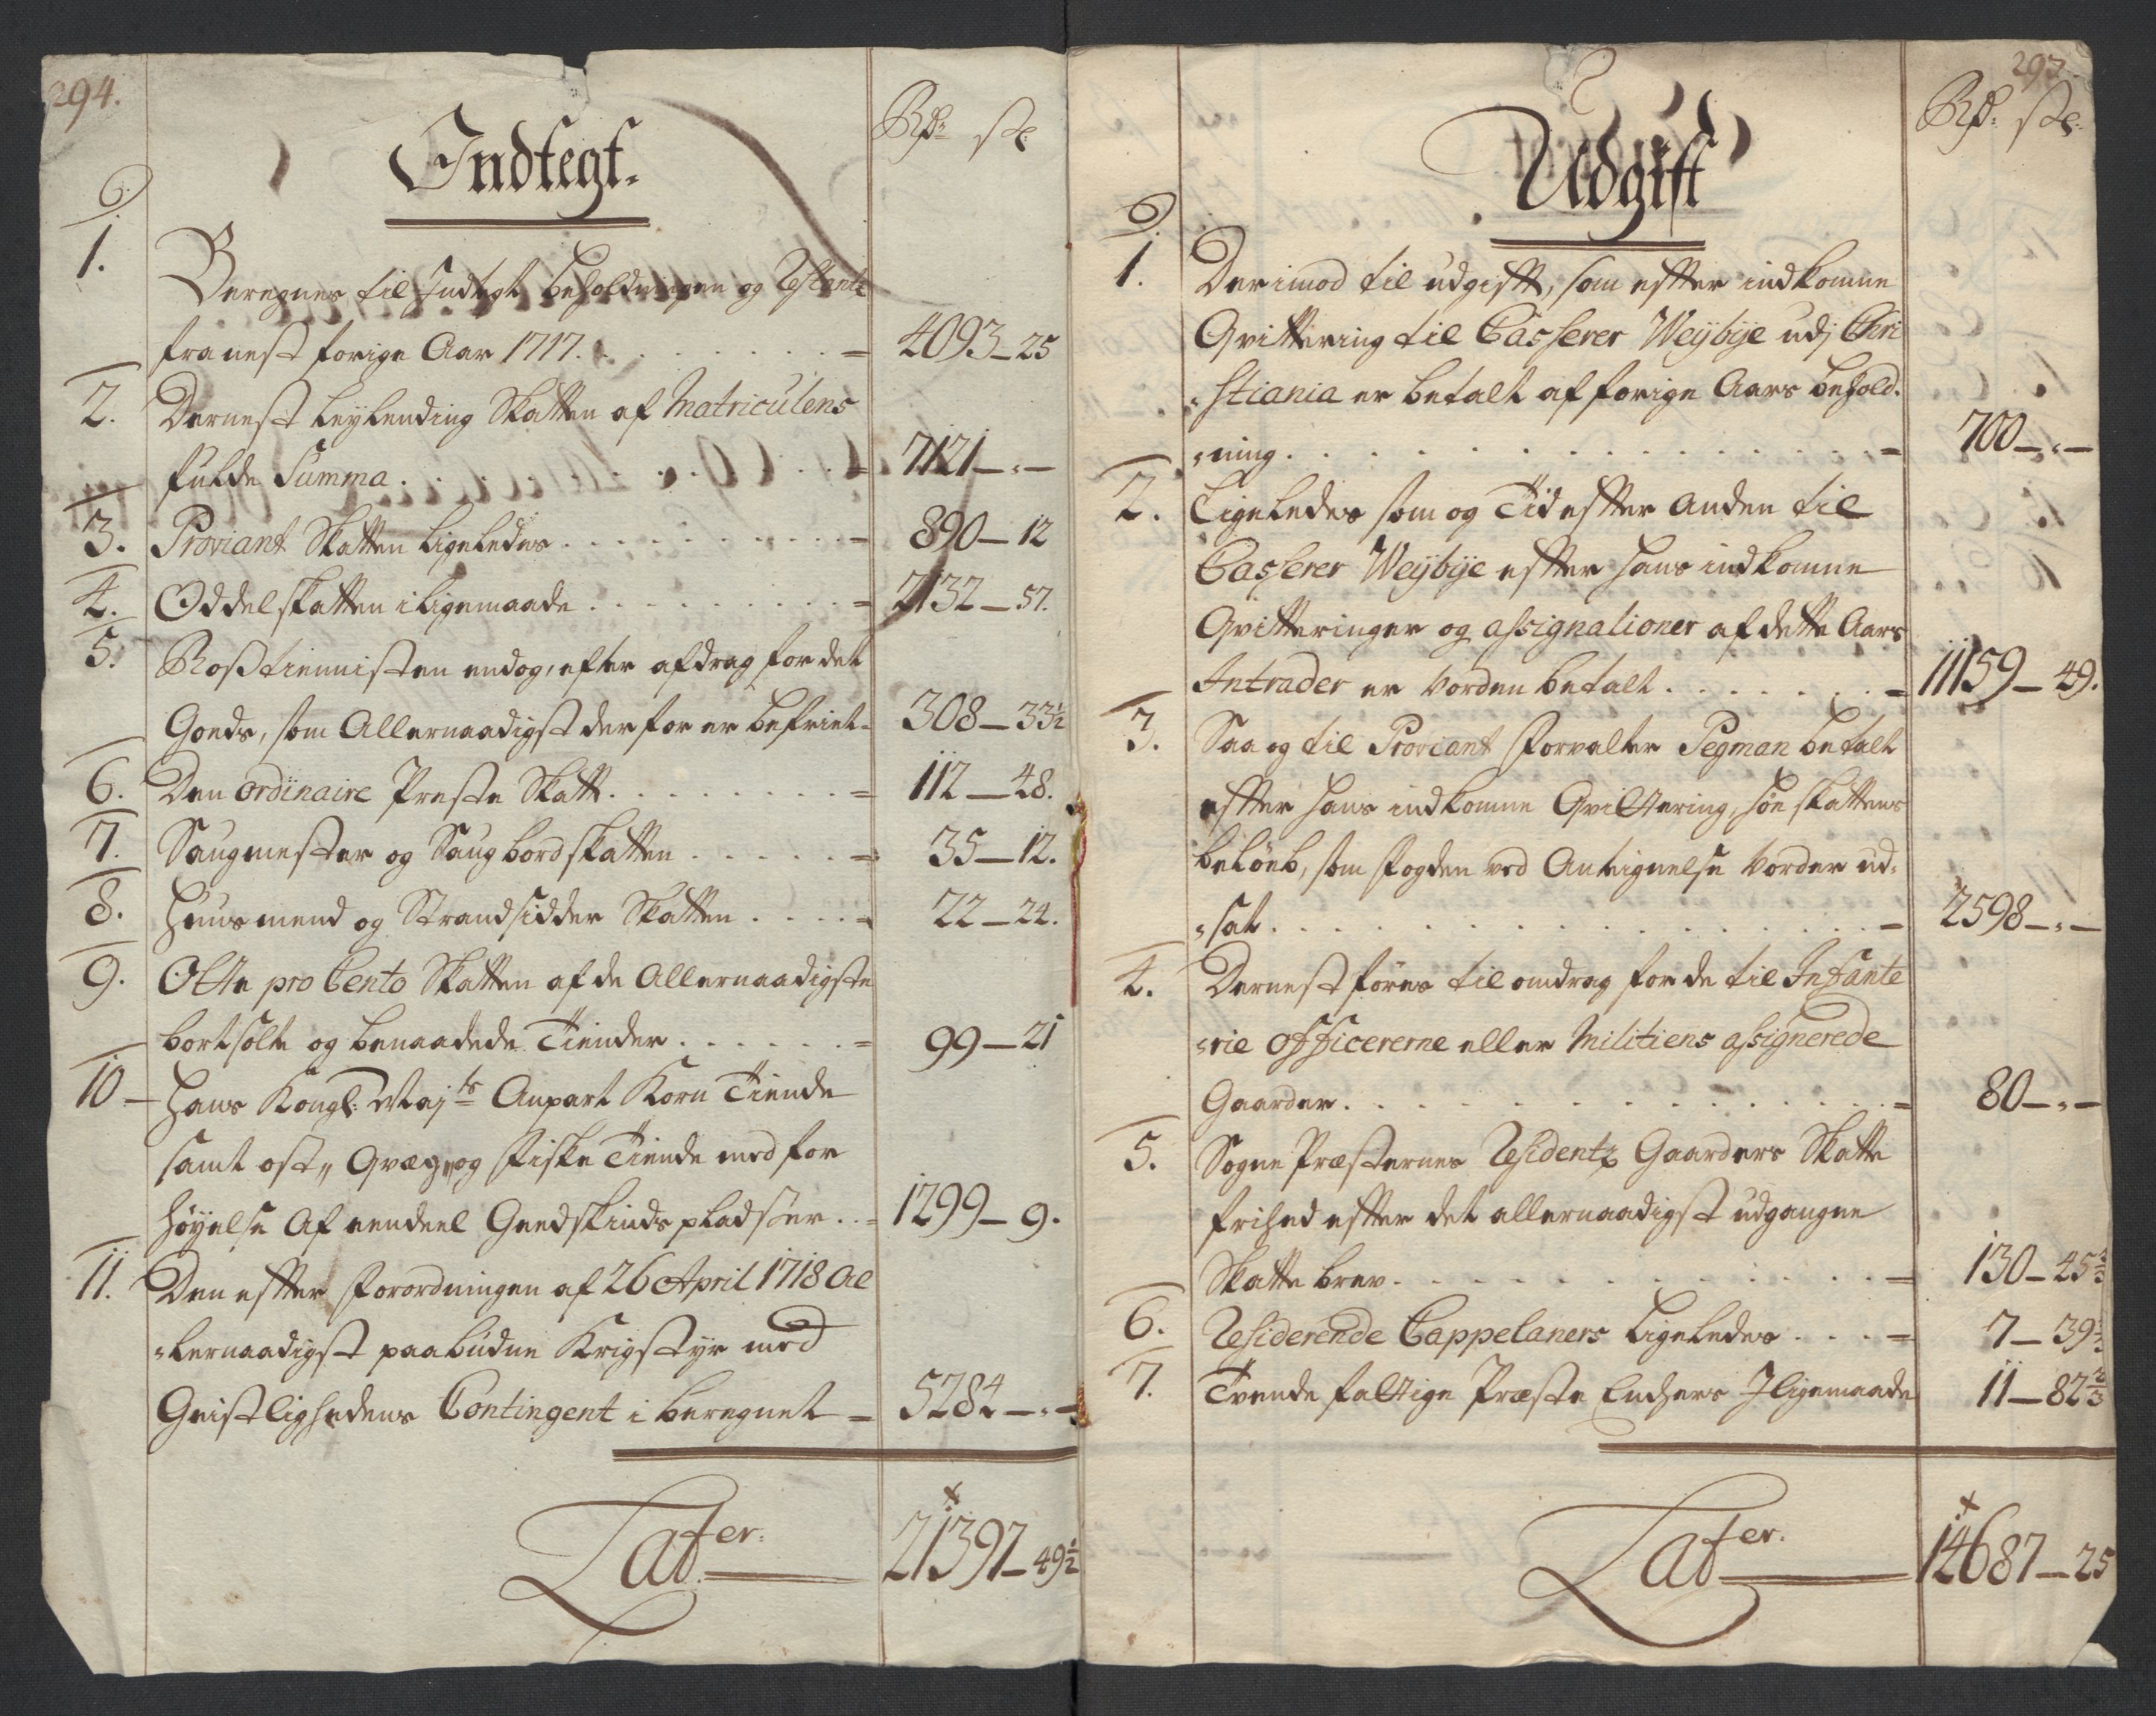 294.
Rdr sk
Indtegt.
1.
Beregnes til Indtegt beholdningen og Restantz
fra nest forige Aar 1717. = 4093 - 25
2. Dernest leylending Skatten af Matriculens
fulde Summa = 7121 - " -
3. Proviant Skatten ligeledes = 890 - 12
4. Oddelskatten i ligemaade = 2132 - 57.
5. Rostienisten endog, efter afdrag for det
Goeds, som Allernaadigst derfor er befriet = 308 - 33½
6. Den ordinaire Preste Skatt = 112 - 48.
7. Saugmester og Saugbordskatten = 35 - 12.
8. Huusmend og Strandsidder Skatten = 22 - 24.
9. Otte pro Cento Skatten af de Allernaadigste
bortsolte og benaadede Tiender = 99 - 21
10 - Hans Kongl: Maj:ts Anpart Korn Tiende
samt ost, Qvæg, og Fiske Tiende med for
høyelse af eendeel Geedskinds pladtzer = 1299 - 9.
11. Den efter forordningen af 26 April 1718 Al
lernaadigst paabudne Krigstyr med
Geistlighedens Contingent i beregnet = 5284 - " -
Later. 21397 - 49½
Rdr: sk:
Udgift
1. Derimod til udgift, som efter indkomne
Qvittering til Casserer Weybye udj Chri
stiania er betalt af forige Aars behold-
ning = 700 - " -
2. Ligeledes som og Tid efter anden til
Casserer Weybye efter hans indkomne
Qvitteringer og assignationer af dette Aars
Intrader er vorden betalt = 11159 - 49.
3. Saa og til Proviant Forvalter Pegman betalt
efter hans indkomne Qvittering, Høe skattens
beløeb, som Fogden ved Antegnelse vorder ud-
sat = 2598 - " -
4. Dernest føres til omdrag for de til Infante
rie officererne eller Militiens assignerede
Gaarder = 80 - " -
5. Sogne Præsternes Residentz Gaarders Skatte
frihed efter det allernaadigst udgangne
Skatte brev = 130 - 25
6. Residerende Cappelaners ligeledes = 7 - 39
7. Tvende fattige Præste Enchers Jligemaade 11 - 82⅔
Later. 14687 - 25